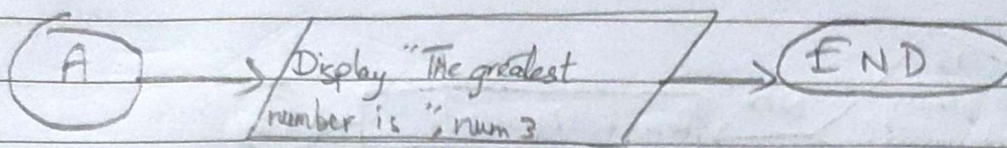 A
Display "The greatest
number is ", num 3
END